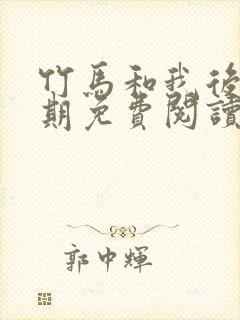 竹馬和我後
期免費閱讀
郭中輝